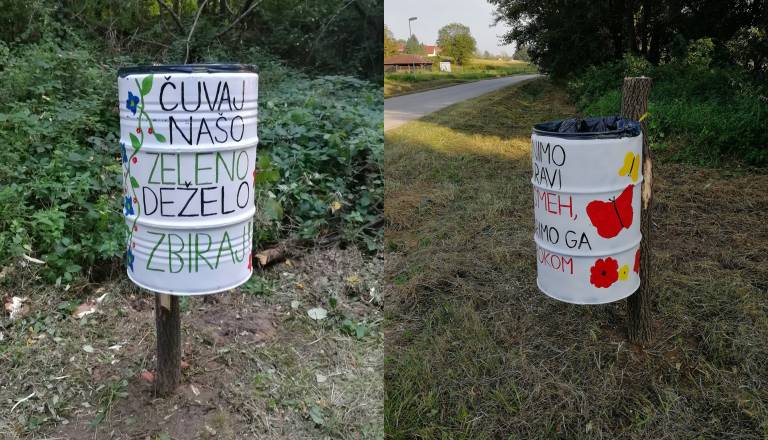 ČUVAJ
NAŠO
ZELENO
DEŽELO
ZBIRAJ!
NIMO
RAVI
MEH,
IMO GA
KOM